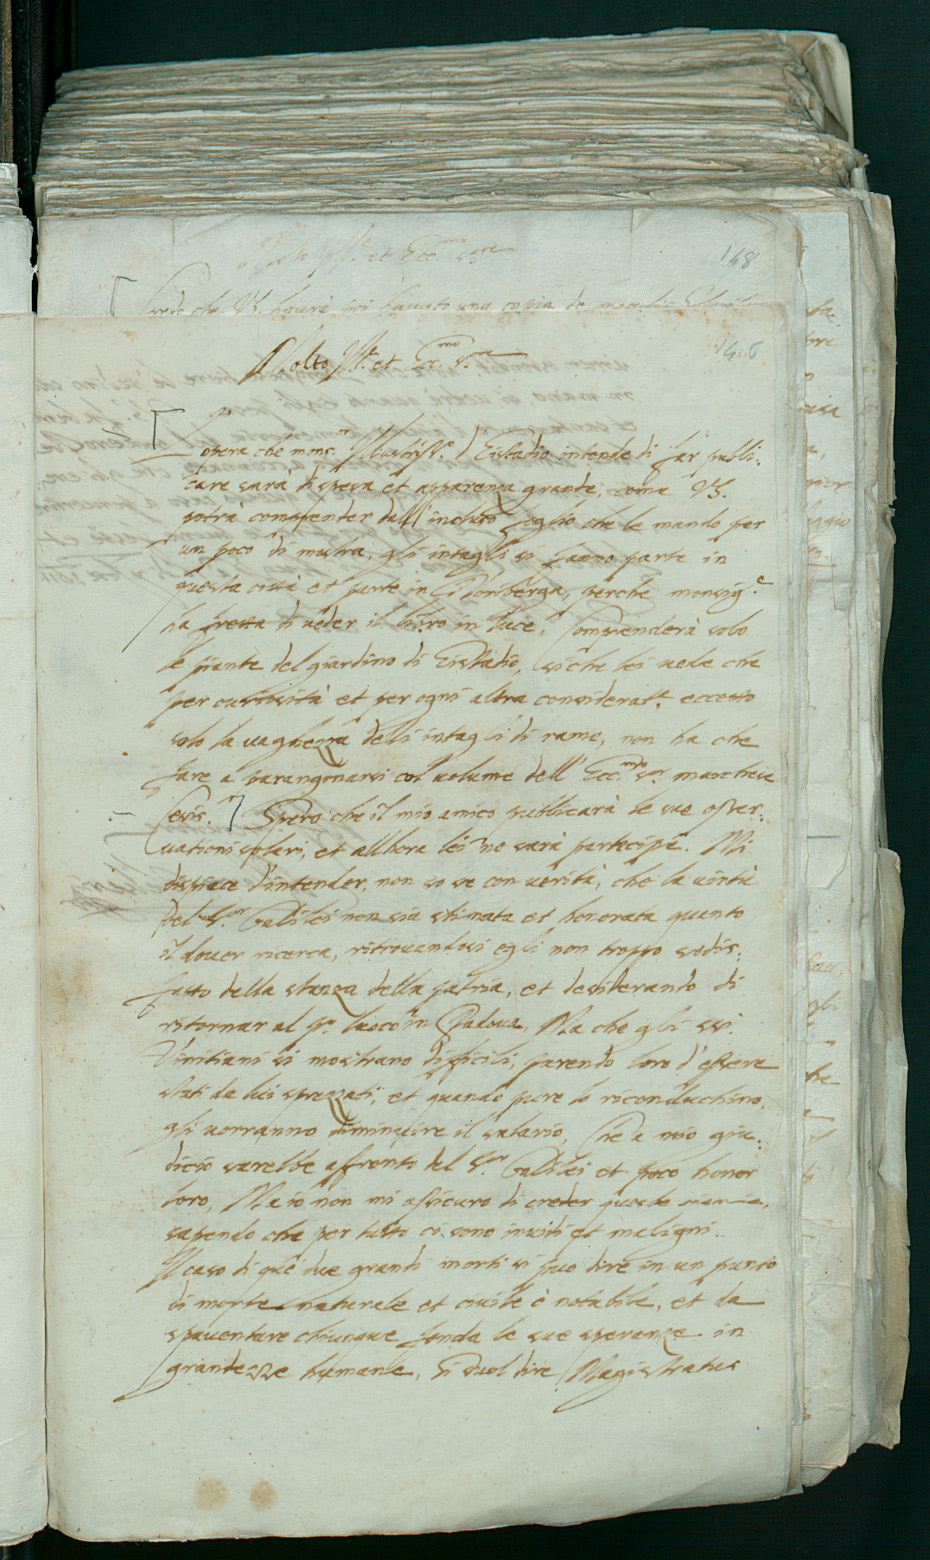 148
146
Molto Ill.re et Ecc.mo S.re
L'opera che mons.r Illustriss.o d'Eistadio intende di far publi:
care sarà di spesa et apparenza grande, come VS.
potrà comprender dall'incluso foglio che le mando per
un poco di mustra, gli intagli si fanno parte in
questa città et parte in Norimberga, perche monsig.e
ha fretta di veder il libro in luce. Comprenderà solo
le piante del giardino di Eistadio, siche lei vede che
per curiosità et per ogni altra considerat.e eccetto
solo la vaghezza delli intagli di rame, non ha che
fare a parangonarsi col volume dell' Ecc.mo s.or marchese
Cesis. Spero che il mio amico publicarà le sue osser:
vationi solari, et allhora lei ne sarà partecipe. Mi
dispiace d'intender, non so se con verità, che la virtù
del S.or Galilei non sia stimata et honorata quanto
il dover ricerca, ritrovandosi egli non troppo sodis:
fatto della stanza della patria, et desiderando di
ritornar al p.o luoco in Padova. Ma che gli ss.i
Vinitiani si mostrano difficili, parendo loro d'essere
stati da lui sprezzati, et quando pure lo riconduchino,
gli vorranno diminuire il salario, che a mio giu:
dicio sarebbe affronto del S.or Galilei et poco honor
loro, Ma io non mi assicuro di creder queste
sapendo che per tutto ci sono invidi et maligni.
Il caso di que due grandi morti si puo dire in un punto
di morte naturale et civile è notabile, et da
spaventare chiunque fonda le sue speranze in
grandezze humane, Si suol dire Magistratus